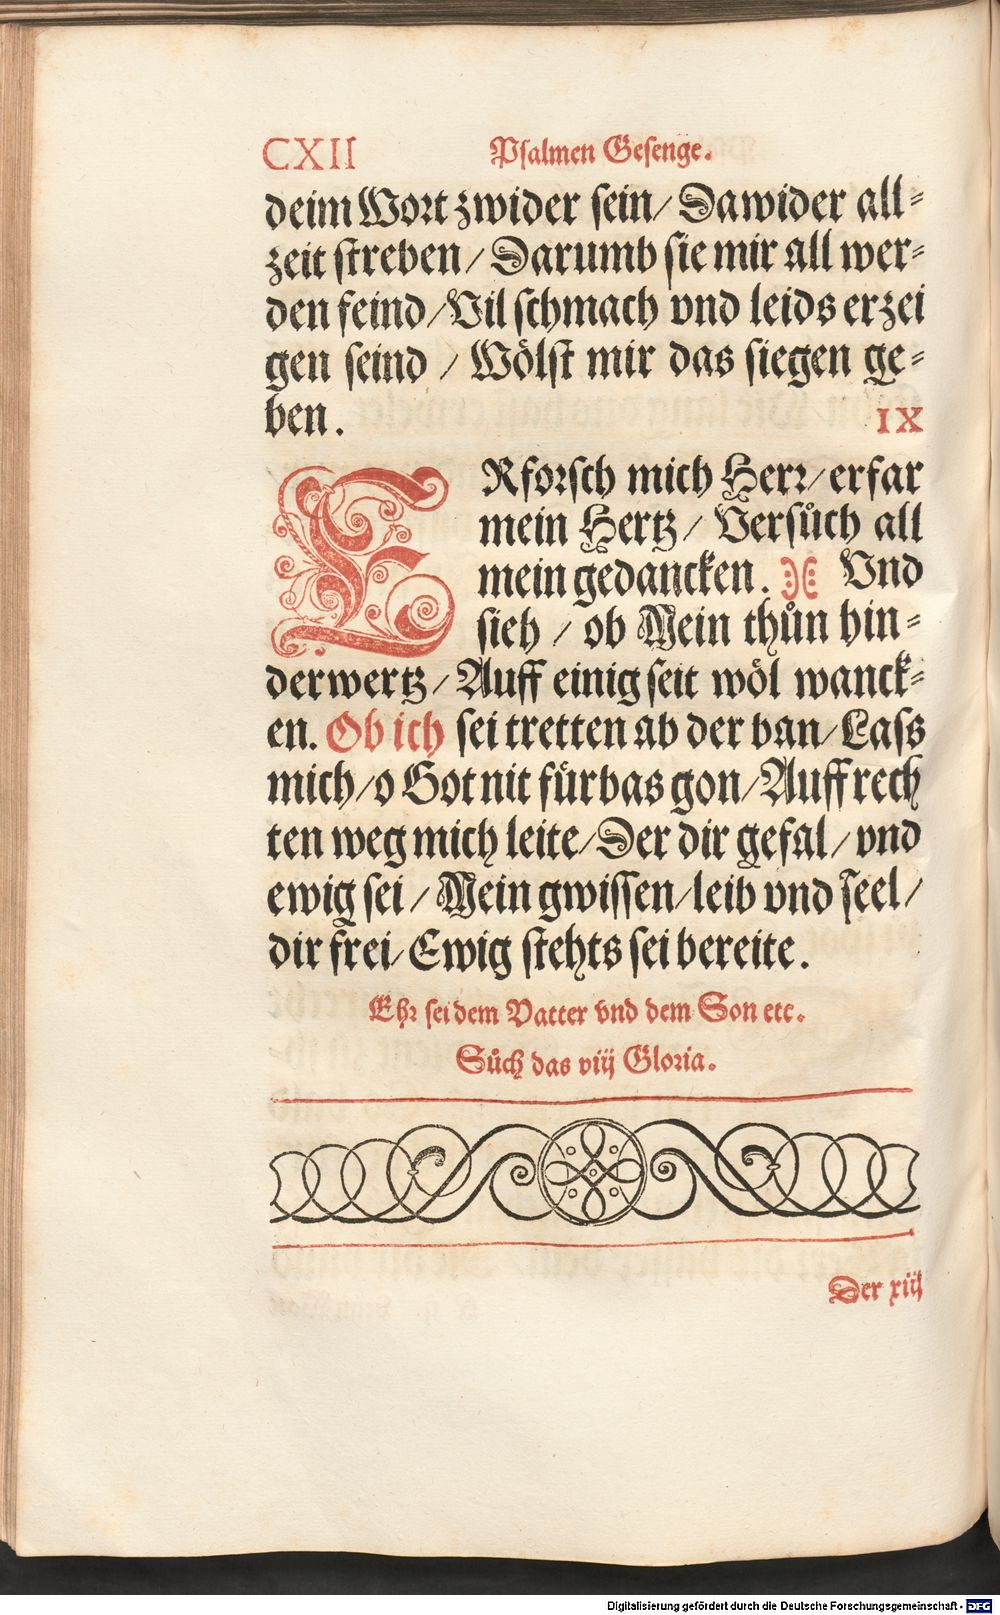 CXII Psalmen Gesenge.
deim Wort zwider sein/ Dawider all-
zeit streben/ Darumb sie mir all wer-
den feind/ Vil schmach vnd leids erzei
gen seind / Wölst mir das siegen ge-
ben. IX
ERforsch mich Herr/ erfar
mein Hertz/ Versůch all
mein gedancken. Vnd
sieh / ob Mein thůn hin-
derwertz/ Auff einig seit wöl wanck-
en. Ob ich sei tretten ab der ban/ Lass
mich/ o Got nit fürbas gon/ Auff rech
ten weg mich leite/ Der dir gefal/ vnd
ewig sei / Mein gwissen/ leib vnd seel/
dir frei/ Ewig stehts sei bereite.
Ehr sei dem Vatter vnd dem Son etc.
Sůch das viij Gloria.
Der xiij
Digitalisierung gefördert durch die Deutsche Forschungsgemeinschaft - DFG